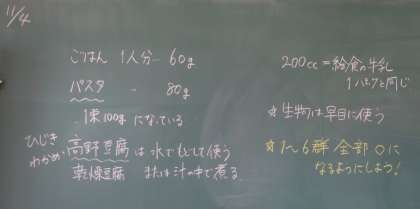 11/4
ごはん 1人分 60g
パスタ 〃 80g
1束100gになっている
ひじき
わかめ
高野豆腐は水でもどして使う
乾燥豆腐 または汁の中で煮る
200cc=給食の牛乳
1パックと同じ
☆生物は早目に使う
☆1〜6群全部○に
なるようにしよう!